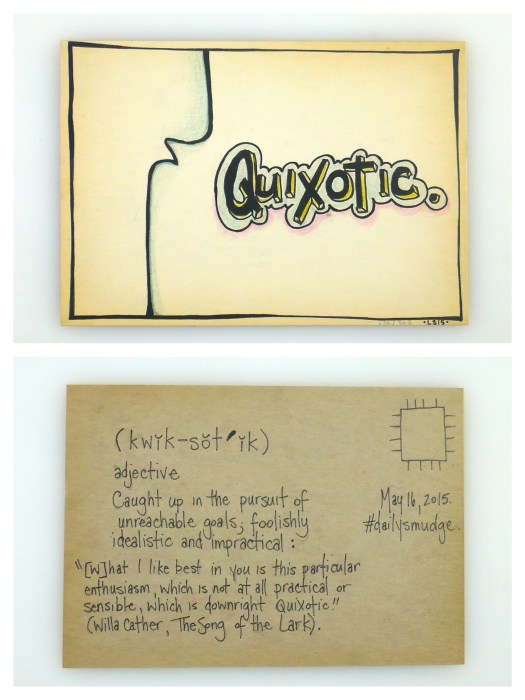 Quixotic.
•LS15•
(kwĭk-sŏt′ĭk)
adjective
Caught up in the pursuit of
unreachable goals; foolishly
idealistic and impractical:
"[W]hat I like best in you is this particular
enthusiasm, which is not at all practical or
sensible, which is downright Quixotic."
(Willa Cather, The Song of the Lark).
May 16, 2015.
#dailysmudge.